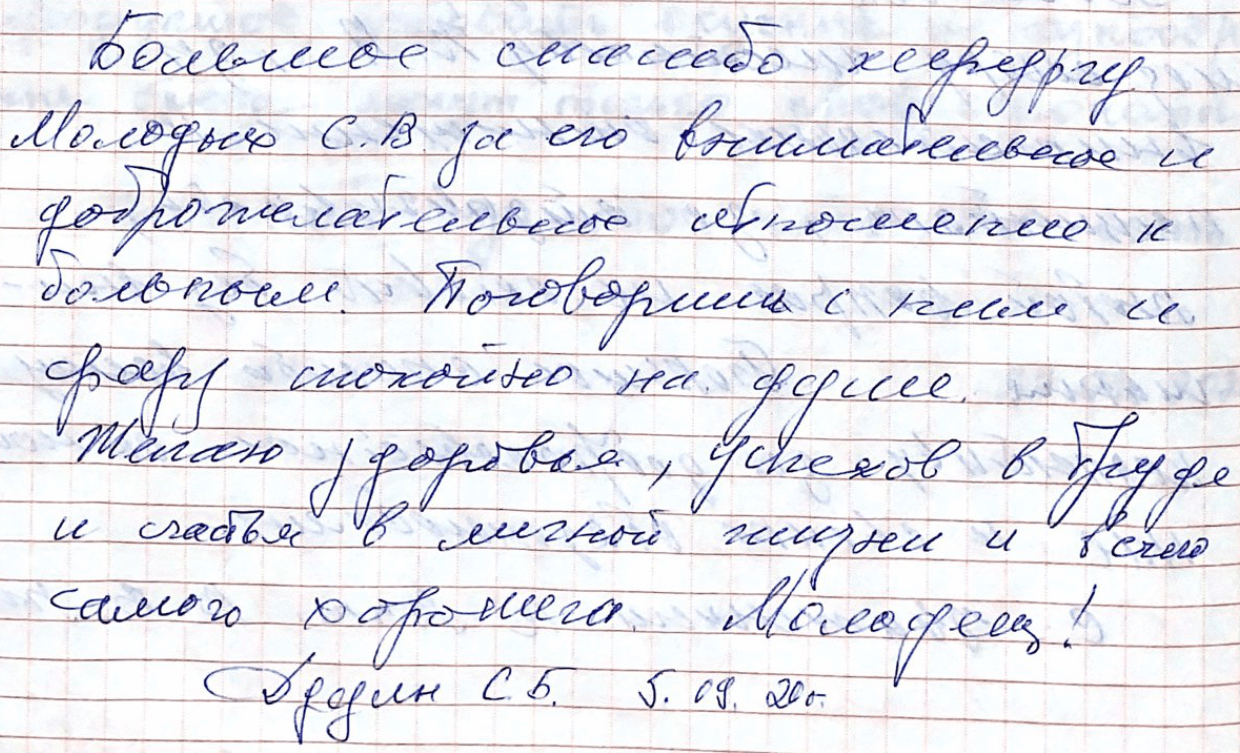 Большое спасибо хирургу
Молодых С.В. за его внимательное и
доброжелательное отношение к
больным. Поговоришь с ним и
сразу спокойно на душе.
Желаю здоровья, успехов в труде
и счастья в личной жизни и всего
самого хорошего. Молодец!
С.Б. 5.09.20г.